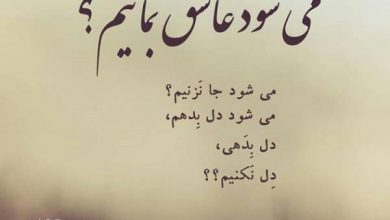 می شود عاشق بمانیم؟
می شود جا نَزنیم؟
می شود دل بِدهم،
دل بِدَهی،
دِل نَکنیم؟؟